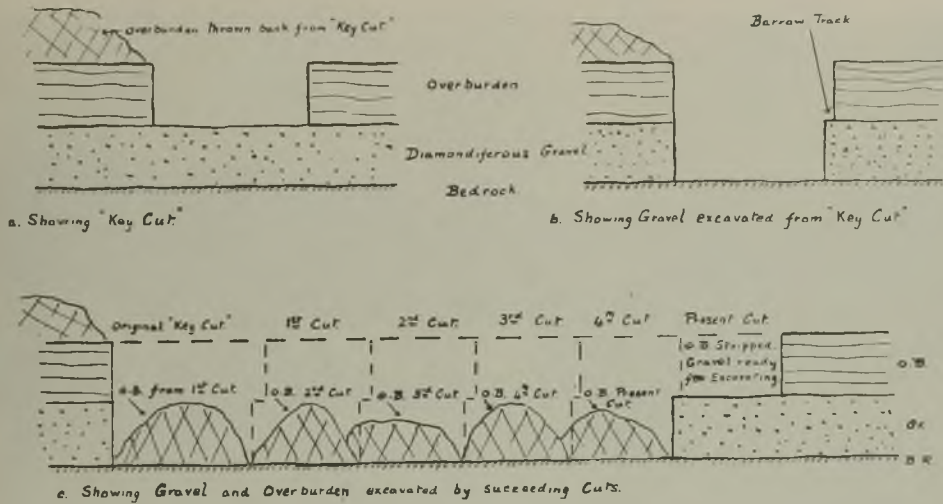 Overburden Thrown back from "Key Cut"
Barrow Track
Overburden
Diamondiferous Gravel
Bedrock
a. Showing "Key Cut."
b. Showing Gravel excavated from "Key Cut"
Original "Key Cut"
1st Cut
2nd Cut
3rd Cut
4th Cut
Present Cut
O.B Stripped.
Gravel ready
for Excavating
O.B.
O.B. from 1st Cut
O.B. 2nd Cut
O.B. 3rd Cut
O.B. 4th Cut
O.B. Present
Cut
B R
c. Showing Gravel and Overburden excavated by Succeeding Cuts.